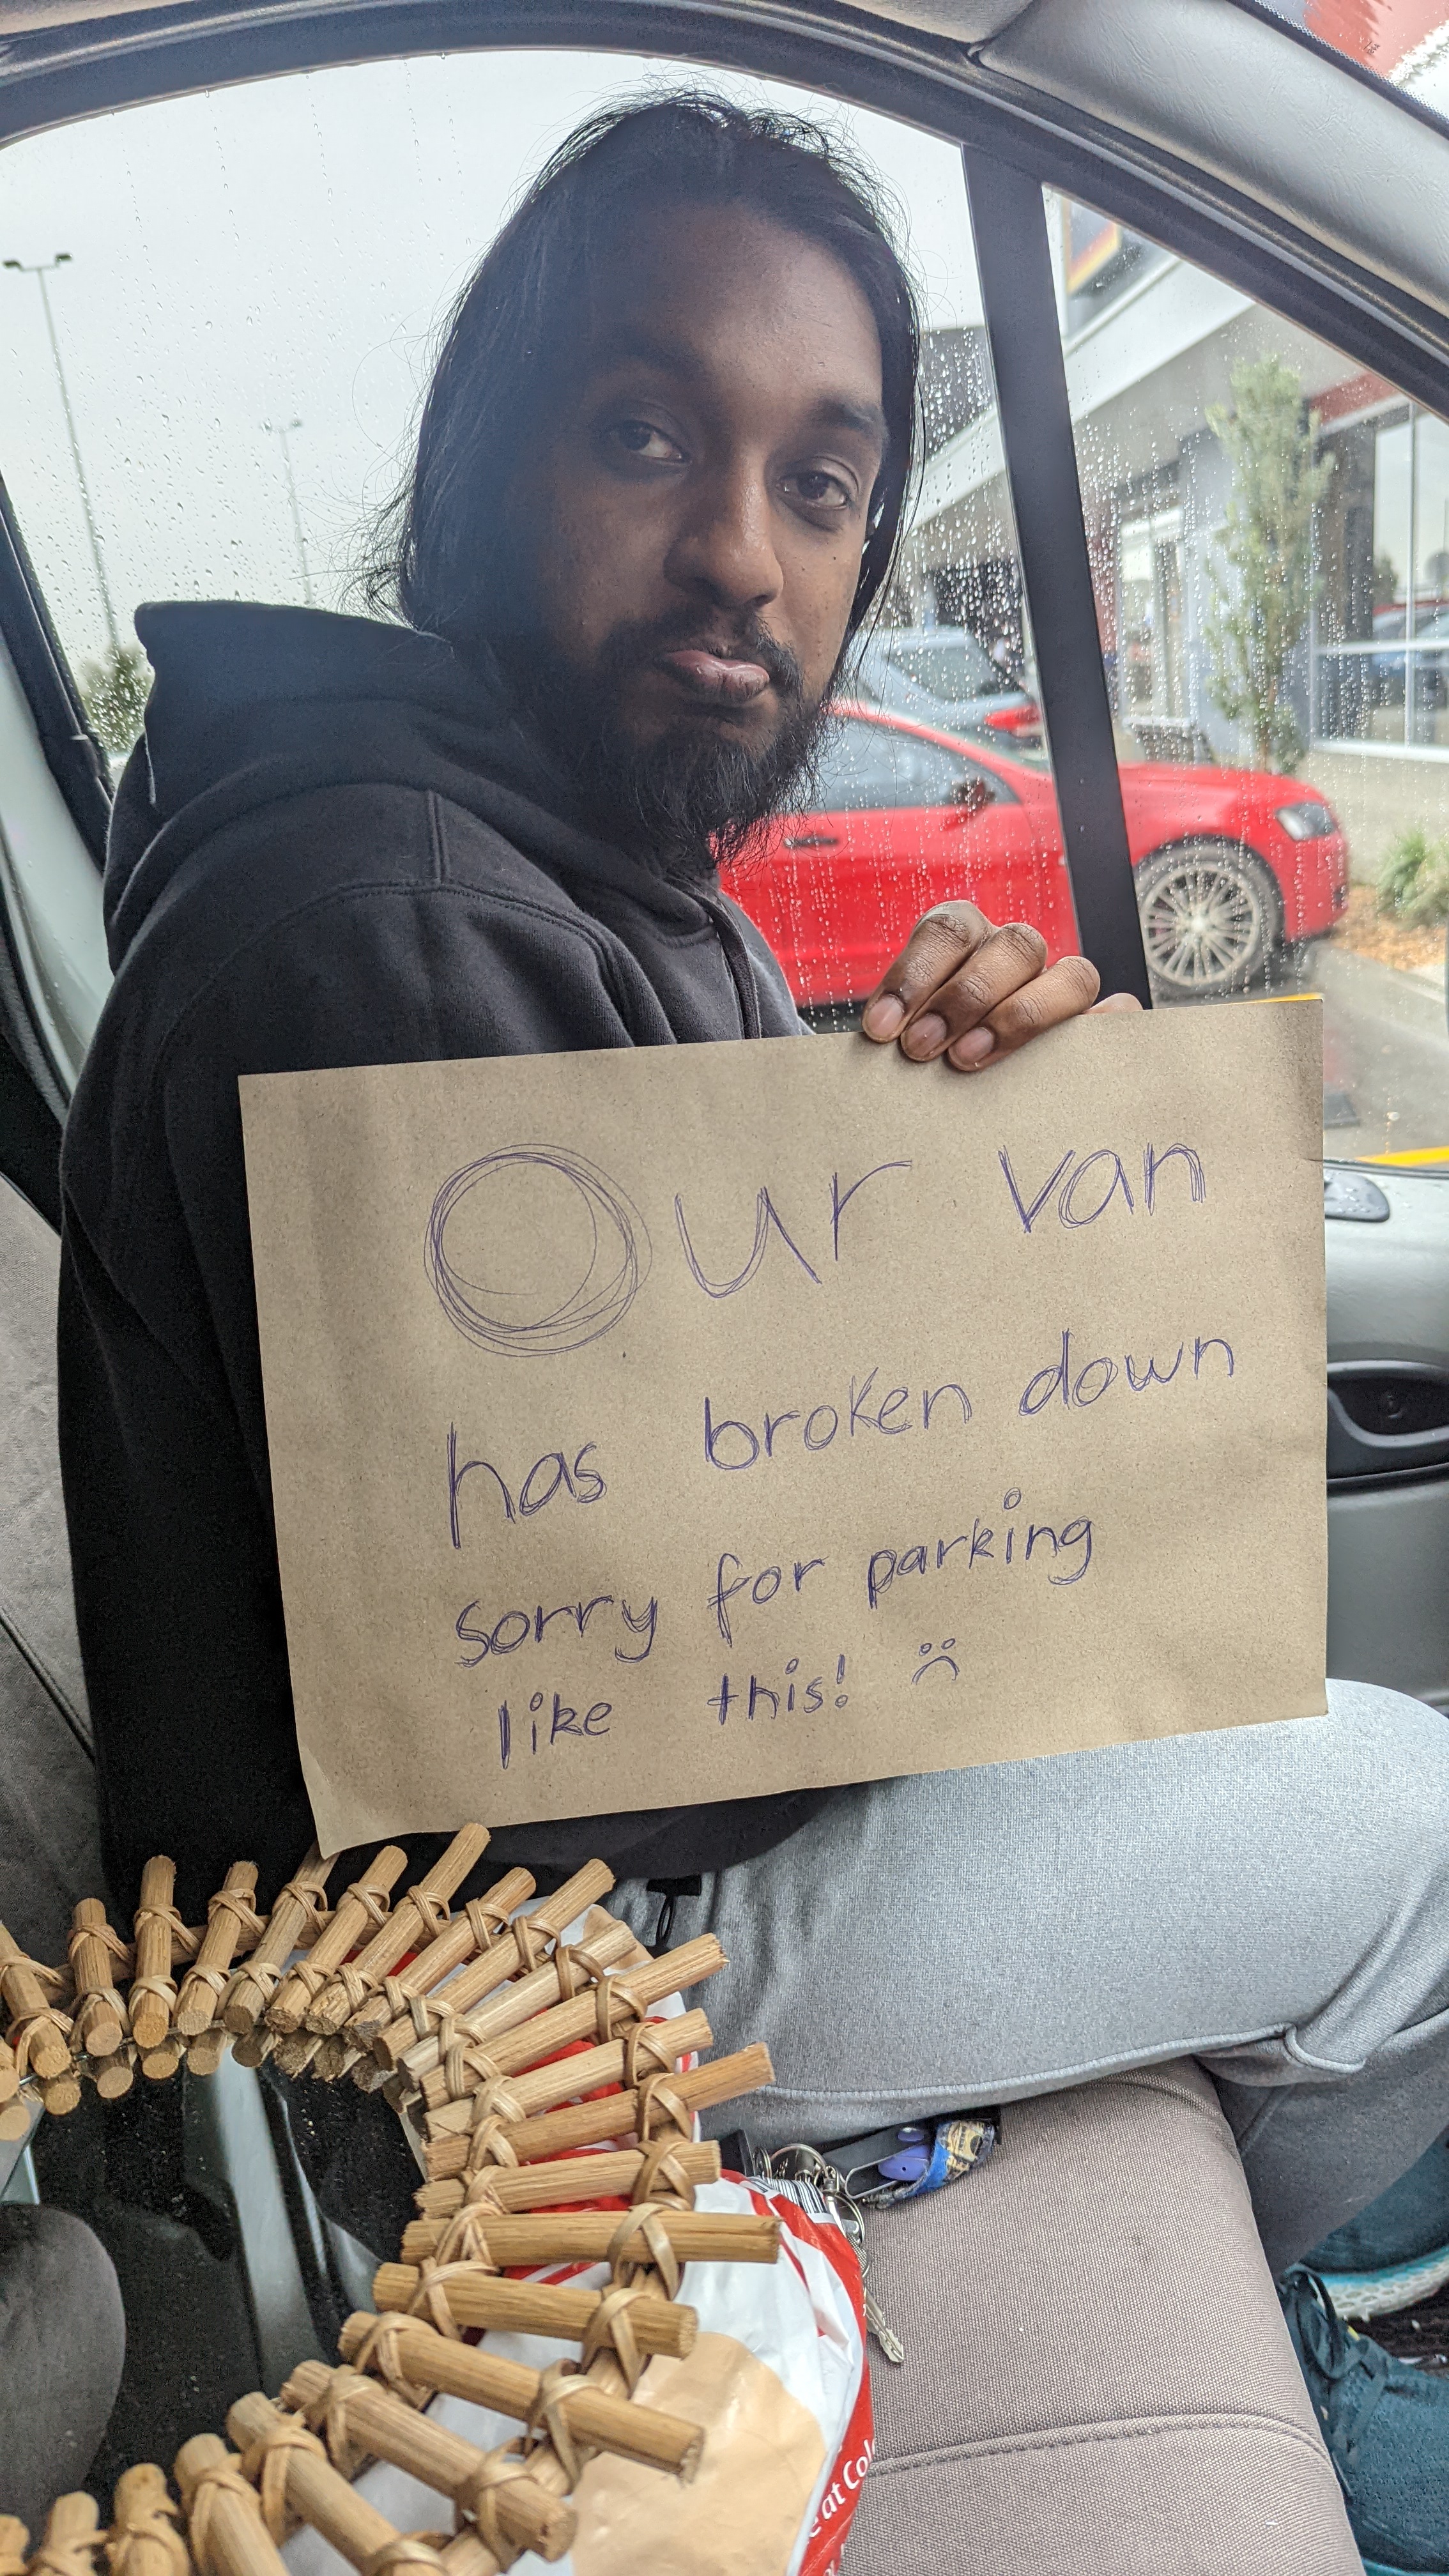 Our van
has broken down
sorry for parking
like this! :(
at Col